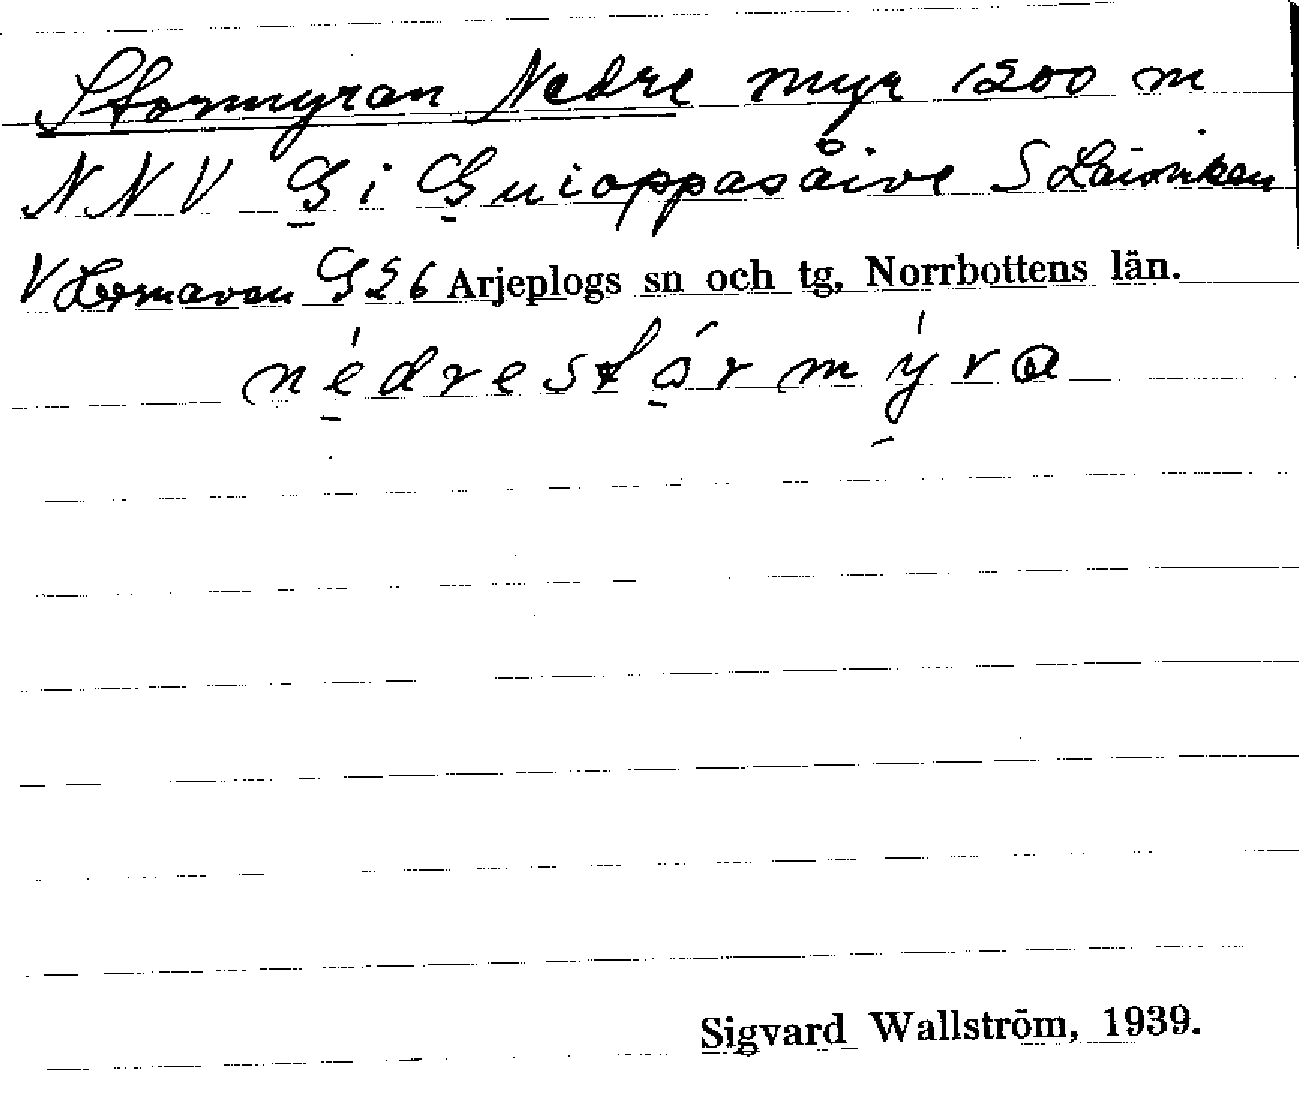 Stormyran Nedre myr 1200 m
NNV G i Guioppasåive S Laisviken
V Hornavan G26 Arjeplogs sn och tg, Norrbottens län.
nédrestórmýra
Sigvard Wallström, 1939.